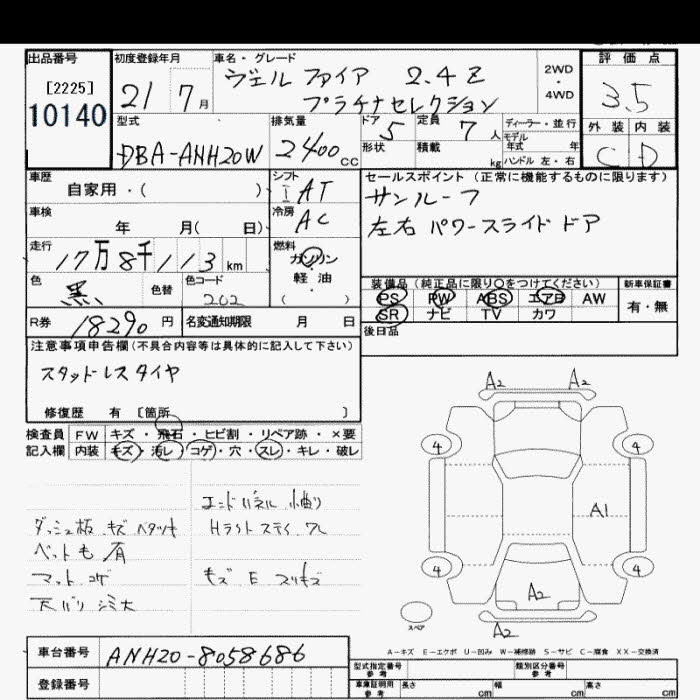 出品番号 初度登録年月 車名・グレード 評価点
[2225] 21 7月 ヴェルファイア 2.4Z 2WD
10140 プラチナセレクション 4WD 3.5
型式 排気量 ドア 定員 ディーラー・並行 外装 内装
DBA-ANH20W 2400cc 5 7人 モデル年式 年 C D
形状 積載 kg ハンドル 左・右
車歴 シフト セールスポイント(正常に機能するものに限ります)
自家用・( ) I AT サンルーフ
車検 冷房 左右 パワースライドドア
年 月( 日) AC
走行 燃料
17万8千113km ガソリン
色 色替 色コード 軽油 装備品(純正品に限り○をつけてください) 新車保証書
黒 202 ( ) PS PW ABS エアB AW 有・無
R券 18290円 名変通知期限 月 日 SR ナビ TV カワ
後日品
注意事項申告欄(不具合内容等は具体的に記入して下さい)
スタッドレスタイヤ
修復歴 有 〔箇所 〕
検査員 FW キズ・飛石・ヒビ割・リペア跡・×要
記入欄 内装 キズ・汚レ・コゲ・穴・スレ・キレ・破レ
A2 A2
4 4
A1
4 4
A2
スペア
A2
エンドパネル 小曲り
ダッシュ板 キズ ベタツキ Hライト ステイ ワレ
ペット毛 有
マット コゲ キズ E スリキズ
天バリ シミ大
A-キズ E-エクボ U-凹み W-補修跡 S-サビ C-腐食 XX-交換済
車台番号 ANH20-8058686
型式指定番号 参考 類別区分番号 参考
登録番号
車庫証明用 参考 長さ cm 幅 cm 高さ cm